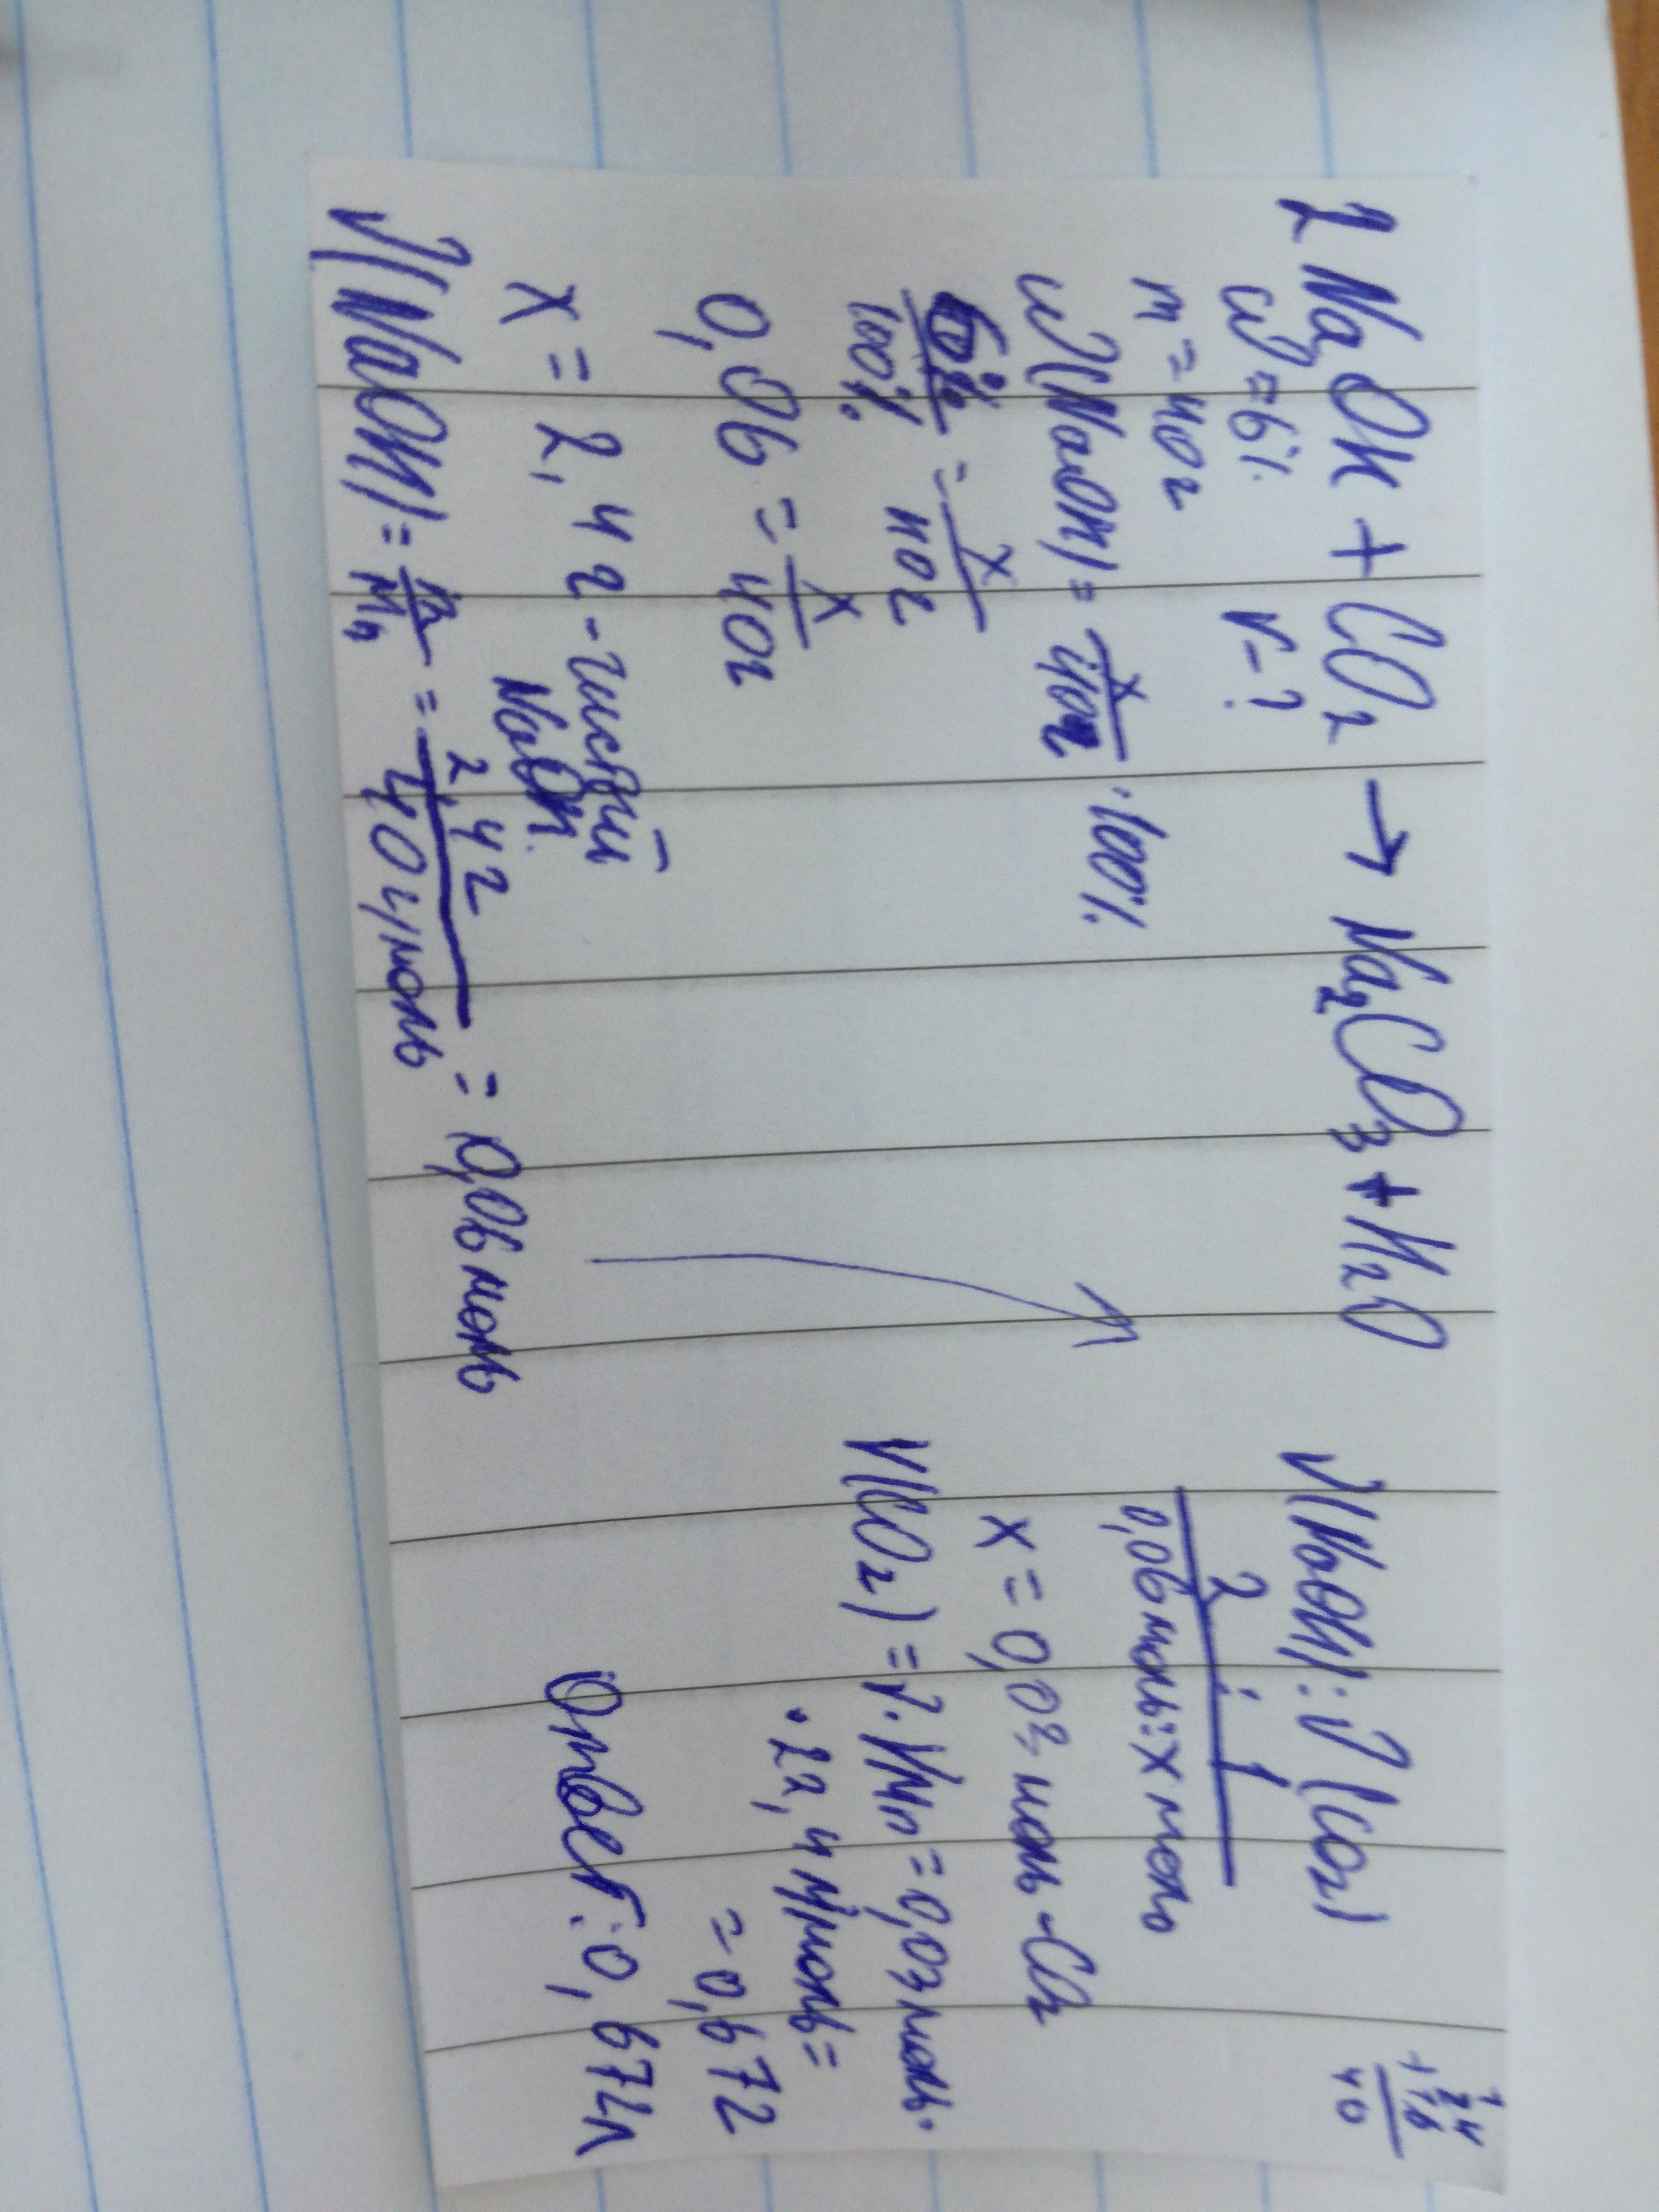 2NaOH + CO₂ → Na₂CO₃ + H₂O
ω = 6% V - ?
m = 40 г
ω(NaOH) = x/40г · 100%
6%/100% = x/40г
0,06 = x/40г
x = 2,4 г - чистый
NaOH.
ν(NaOH) = m/Mn = 2,4г/40 г/моль = 0,06 моль
ν(NaOH) : ν(CO₂)
2 : 1
0,06 моль : x моль
x = 0,03 моль - CO₂
V(CO₂) = ν · Vm = 0,03 моль ·
· 22,4 л/моль =
= 0,672
Ответ: 0,672л
1
24
+ 16
40